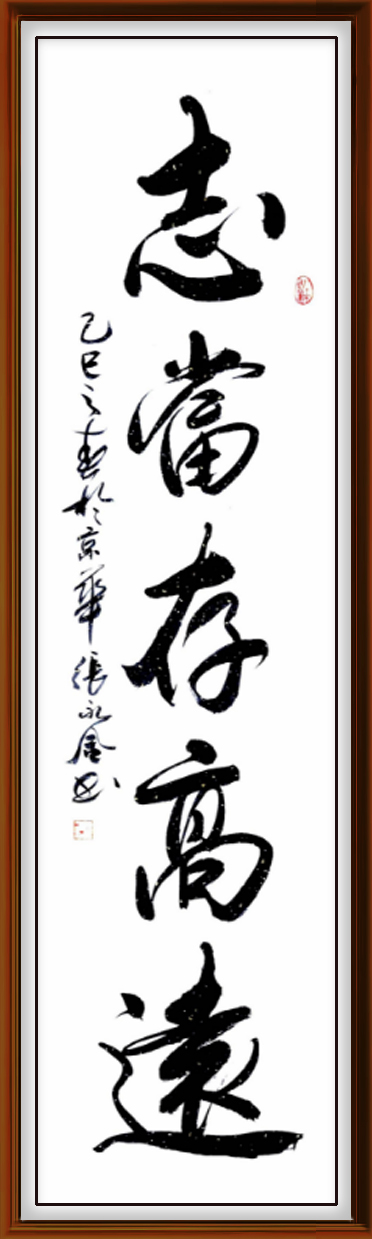 志當存高遠
乙巳之春於京華張永金书